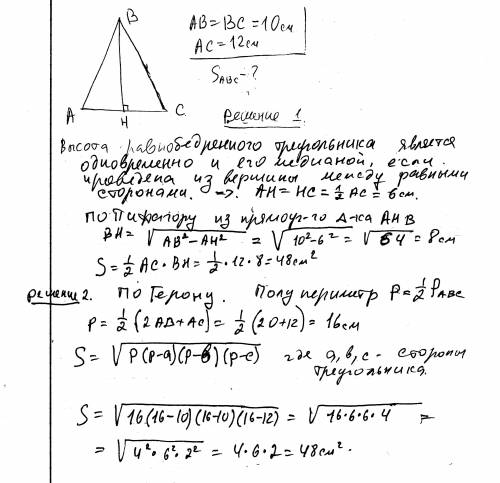 B
AB = BC = 10см
AC = 12см
S_ABC - ?
A H C
Решение 1.
Высота равнобедренного треугольника является
одновременно и его медианой, если
проведена из вершины между равными
сторонами. → AH = HC = 1/2 AC = 6см.
По Пифагору из прямоуг-го Δ-ка AHB
BH = √(AB² - AH²) = √(10² - 6²) = √64 = 8см
S = 1/2 AC · BH = 1/2 · 12 · 8 = 48см²
Решение 2. По Герону. Полупериметр P = 1/2 P_ABC
P = 1/2 (2AB + AC) = 1/2 (20 + 12) = 16см
S = √(P(P-a)(P-b)(P-c)) где a, b, c - стороны
треугольника.
S = √(16(16-10)(16-10)(16-12)) = √(16·6·6·4) =
= √(4² · 6² · 2²) = 4·6·2 = 48см².